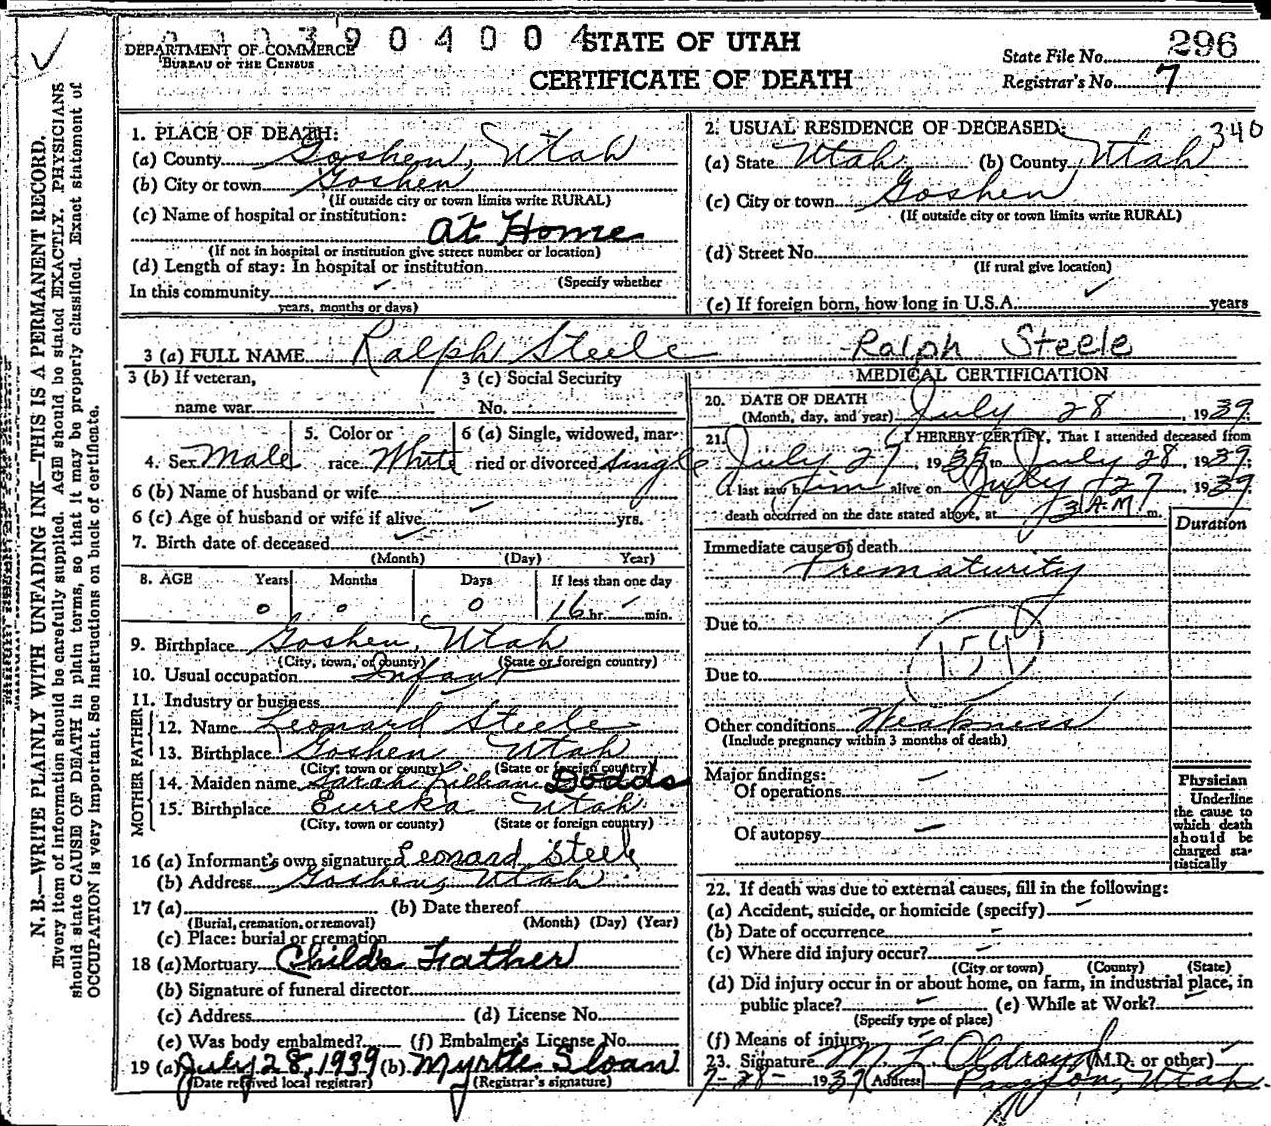 0 0 0 3 9 0 4 0 0 4
DEPARTMENT OF COMMERCE
BUREAU OF THE CENSUS
STATE OF UTAH
CERTIFICATE OF DEATH
State File No. 296
Registrar's No. 7
N. B.—WRITE PLAINLY WITH UNFADING INK—THIS IS A PERMANENT RECORD.
Every item of information should be carefully supplied. AGE should be stated EXACTLY. PHYSICIANS
should state CAUSE OF DEATH in plain terms, so that it may be properly classified. Exact statement of
OCCUPATION is very important. See instructions on back of certificate.
1. PLACE OF DEATH:
(a) County Goshen, Utah
(b) City or town Goshen
(If outside city or town limits write RURAL)
(c) Name of hospital or institution:
At Home
(If not in hospital or institution give street number or location)
(d) Length of stay: In hospital or institution
(Specify whether
In this community ✓
years, months or days)
2. USUAL RESIDENCE OF DECEASED: 340
(a) State Utah (b) County Utah
(c) City or town Goshen
(If outside city or town limits write RURAL)
(d) Street No.
(If rural give location)
(e) If foreign born, how long in U.S.A. ✓ years
3 (a) FULL NAME Ralph Steele Ralph Steele
3 (b) If veteran,
name war
3 (c) Social Security
No.
4. Sex Male
5. Color or
race White
6 (a) Single, widowed, mar-
ried or divorced Single
6 (b) Name of husband or wife
6 (c) Age of husband or wife if alive yrs.
7. Birth date of deceased
(Month) (Day) Year)
8. AGE Years Months Days If less than one day
0 0 0 16 hr. min.
9. Birthplace Goshen, Utah
(City, town, or county) (State or foreign country)
10. Usual occupation Infant
11. Industry or business
FATHER
12. Name Leonard Steele
13. Birthplace Goshen Utah
(City, town or county) (State or foreign country)
MOTHER
14. Maiden name Sarah Lillian Dodds
15. Birthplace Eureka Utah
(City, town or county) (State or foreign country)
16 (a) Informant's own signature Leonard Steele
(b) Address Goshen, Utah
17 (a) (b) Date thereof
(Burial, cremation, or removal) (Month) (Day) (Year)
(c) Place: burial or cremation
18 (a) Mortuary Child's Father
(b) Signature of funeral director
(c) Address (d) License No.
(e) Was body embalmed? (f) Embalmer's License No.
19 (a) July 28, 1939 (b) Myrtle Sloan
(Date received local registrar) (Registrar's signature)
MEDICAL CERTIFICATION
20. DATE OF DEATH
(Month, day, and year) July 28, 1939
21. I HEREBY CERTIFY, That I attended deceased from
July 27, 1939 to July 28, 1939
I last saw him alive on July 27 1939
death occurred on the date stated above, at 3 A.M. m.
Duration
Immediate cause of death
Prematurity
Due to
154
Due to
Other conditions Weakness
(Include pregnancy within 3 months of death)
Major findings:
Of operations
Of autopsy
Physician
Underline
the cause to
which death
should be
charged sta-
tistically
22. If death was due to external causes, fill in the following:
(a) Accident, suicide, or homicide (specify)
(b) Date of occurrence
(c) Where did injury occur?
(City or town) (County) (State)
(d) Did injury occur in or about home, on farm, in industrial place, in
public place? (e) While at Work?
(Specify type of place)
(f) Means of injury
23. Signature M L Oldroyd (M.D. or other)
7-28- 1939 (Address) Payson, Utah